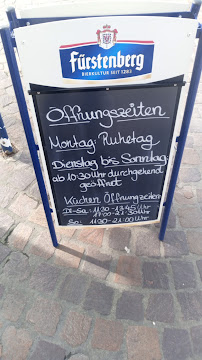 Fürstenberg
BIERKULTUR SEIT 1283
Öffnungszeiten
Montag: Ruhetag
Dienstag bis Sonntag
ab 10:30 Uhr durchgehend
geöffnet
Küchen Öffnungzeiten
Di-Sa: 11:30-13:45 Uhr
17:00-21:30 Uhr
So: 11:30-21:00 Uhr